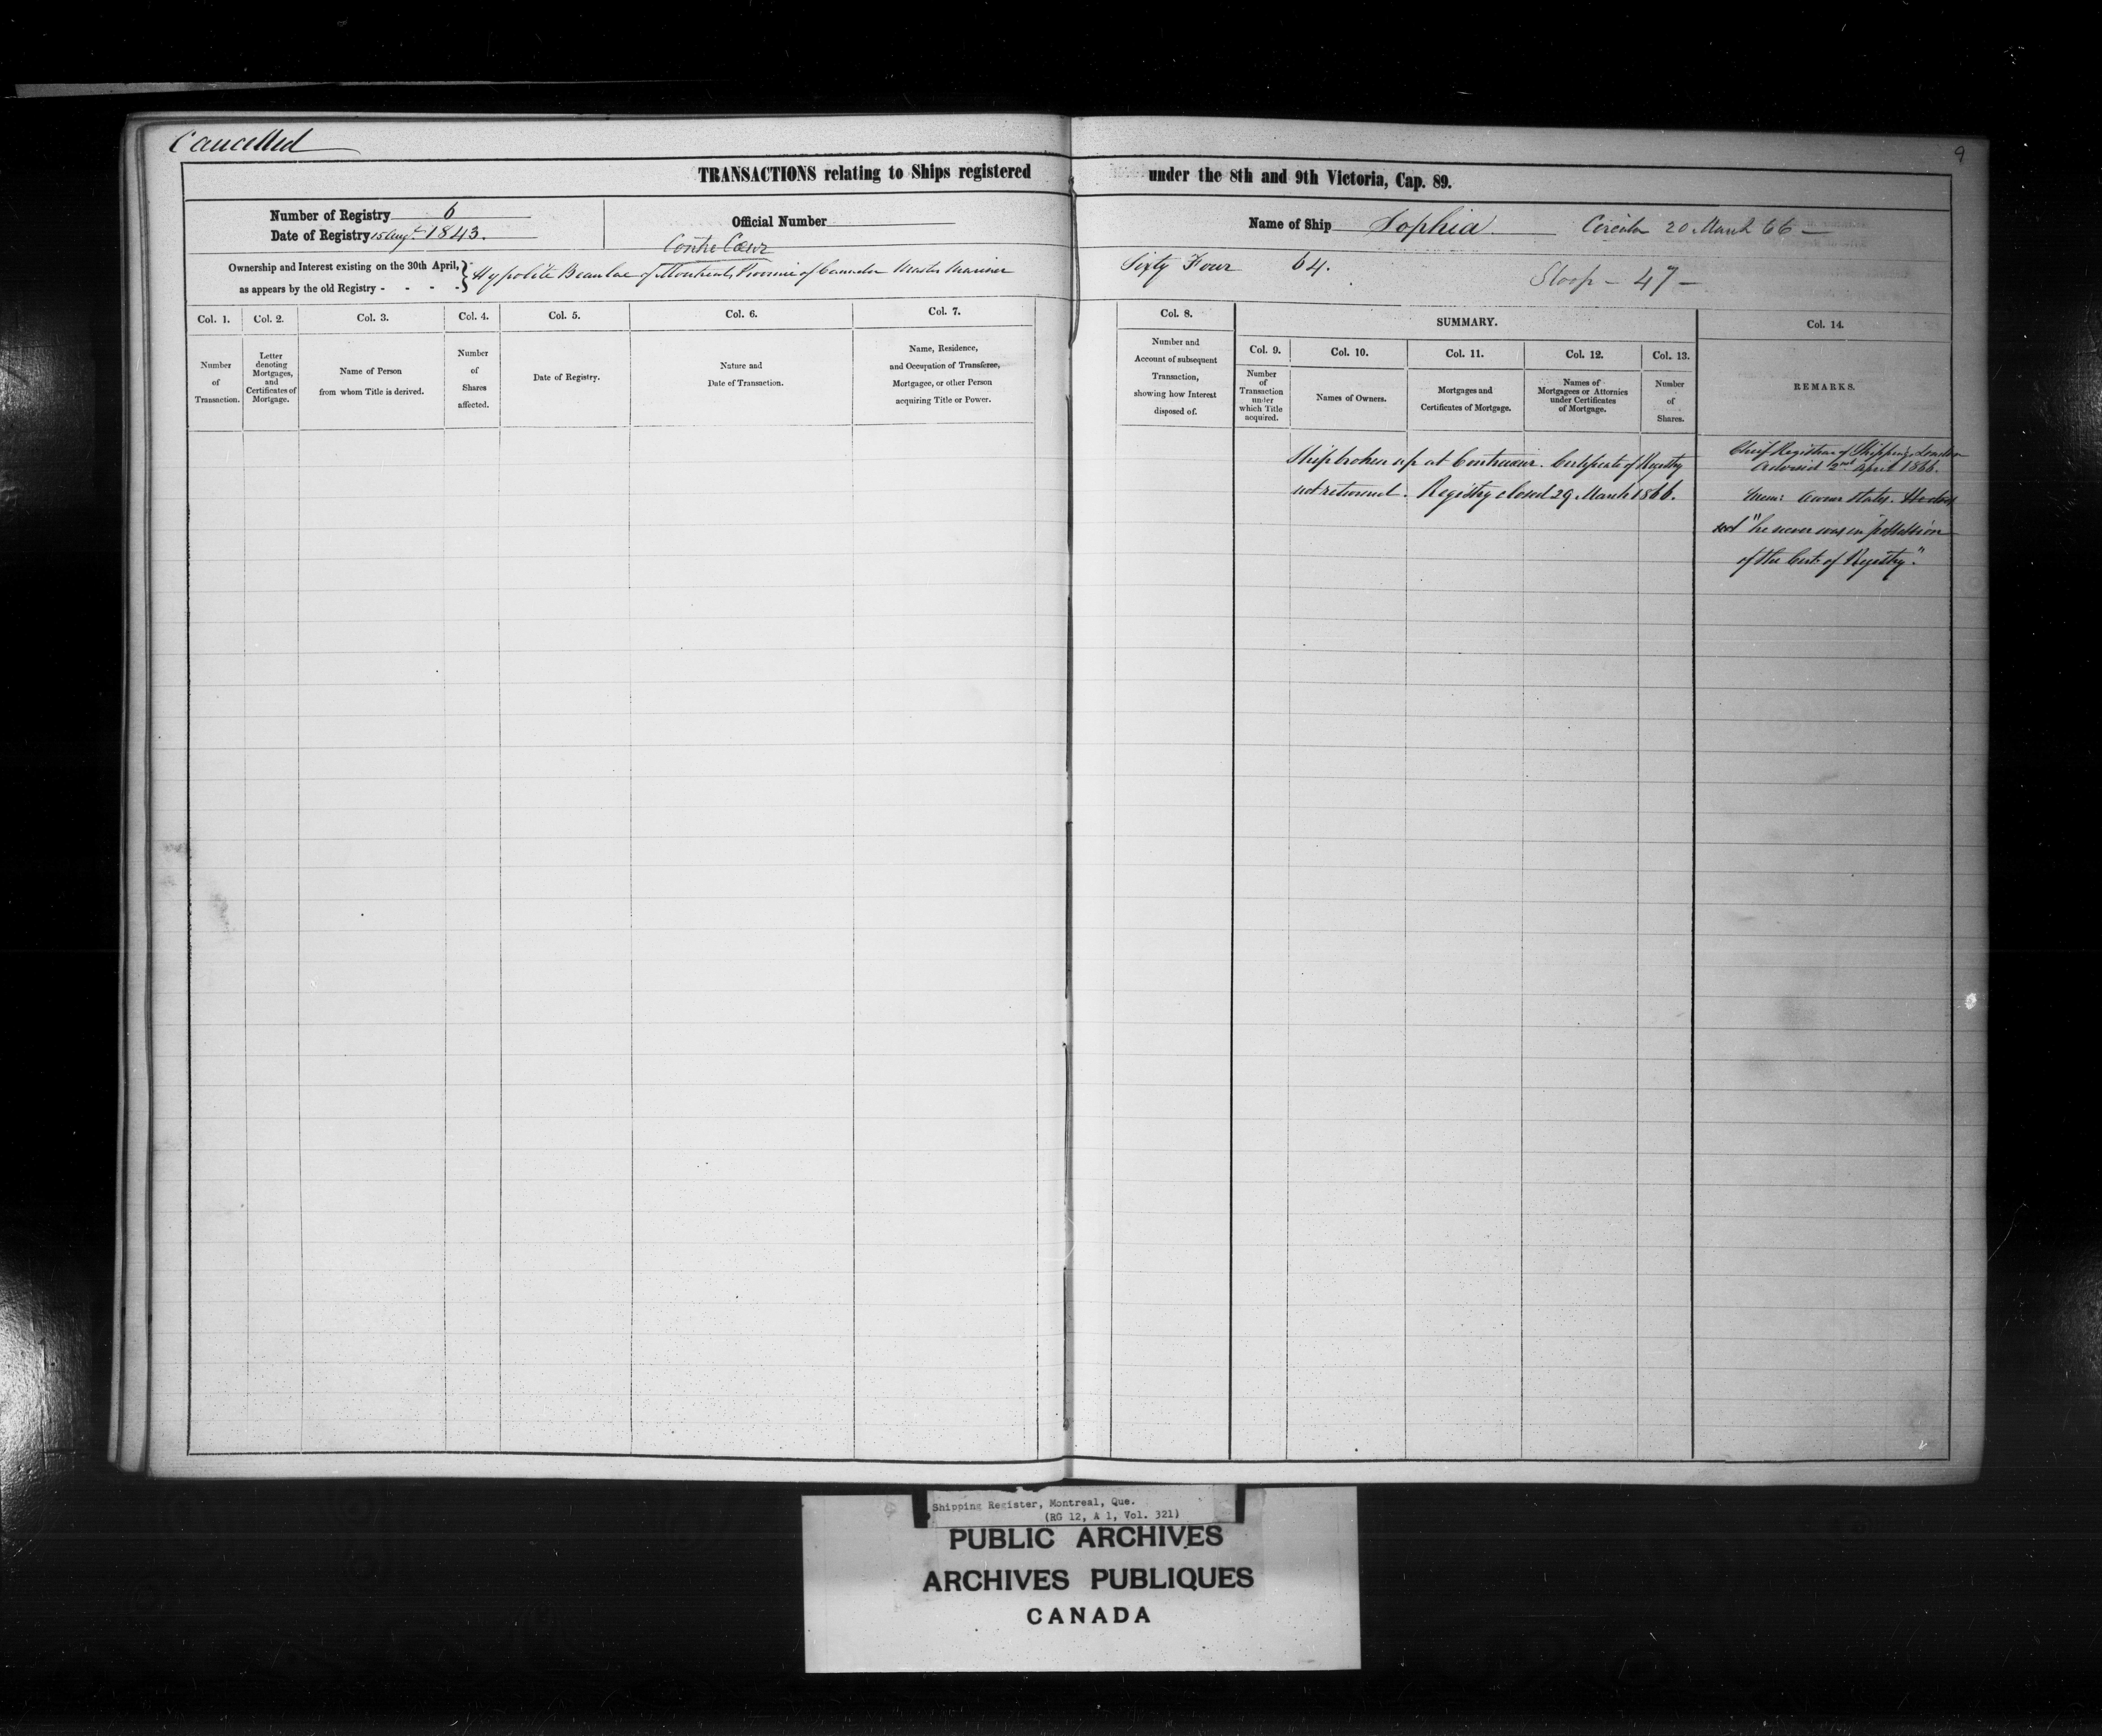 Cancelled
9
TRANSACTIONS relating to Ships registered under the 8th and 9th Victoria, Cap. 89.
Number of Registry 6
Date of Registry 15 Augt. 1843.
Official Number
Name of Ship Sophia Circular 20 March 66
Contre Cœur
Ownership and Interest existing on the 30th April,
as appears by the old Registry - - - -
Hypolite Beaulac of Montreal, Province of Canada Master Mariner Sixty Four 64.
Sloop - 47 -
Col. 1.
Number
of
Transaction.
Col. 2.
Letter
denoting
Mortgages,
and
Certificates of
Mortgage.
Col. 3.
Name of Person
from whom Title is derived.
Col. 4.
Number
of
Shares
affected.
Col. 5.
Date of Registry.
Col. 6.
Nature and
Date of Transaction.
Col. 7.
Name, Residence,
and Occupation of Transferee,
Mortgagee, or other Person
acquiring Title or Power.
Col. 8.
Number and
Account of subsequent
Transaction,
showing how Interest
disposed of.
SUMMARY.
Col. 9.
Number
of
Transaction
under
which Title
acquired.
Col. 10.
Names of Owners.
Col. 11.
Mortgages and
Certificates of Mortgage.
Col. 12.
Names of
Mortgagees or Attornies
under Certificates
of Mortgage.
Col. 13.
Number
of
Shares.
Col. 14.
REMARKS.
Ship broken up at Contrecœur. Certificate of Registry
not returned. Registry closed 29 March 1866.
Chief Registrar of Shipping, London
advised 2nd April 1866.
Mem: Owner states. He does
not "he never was in possession
of the Cert. of Registry."
Shipping Register, Montreal, Que.
(RG 12, A 1, Vol. 321)
PUBLIC ARCHIVES
ARCHIVES PUBLIQUES
CANADA